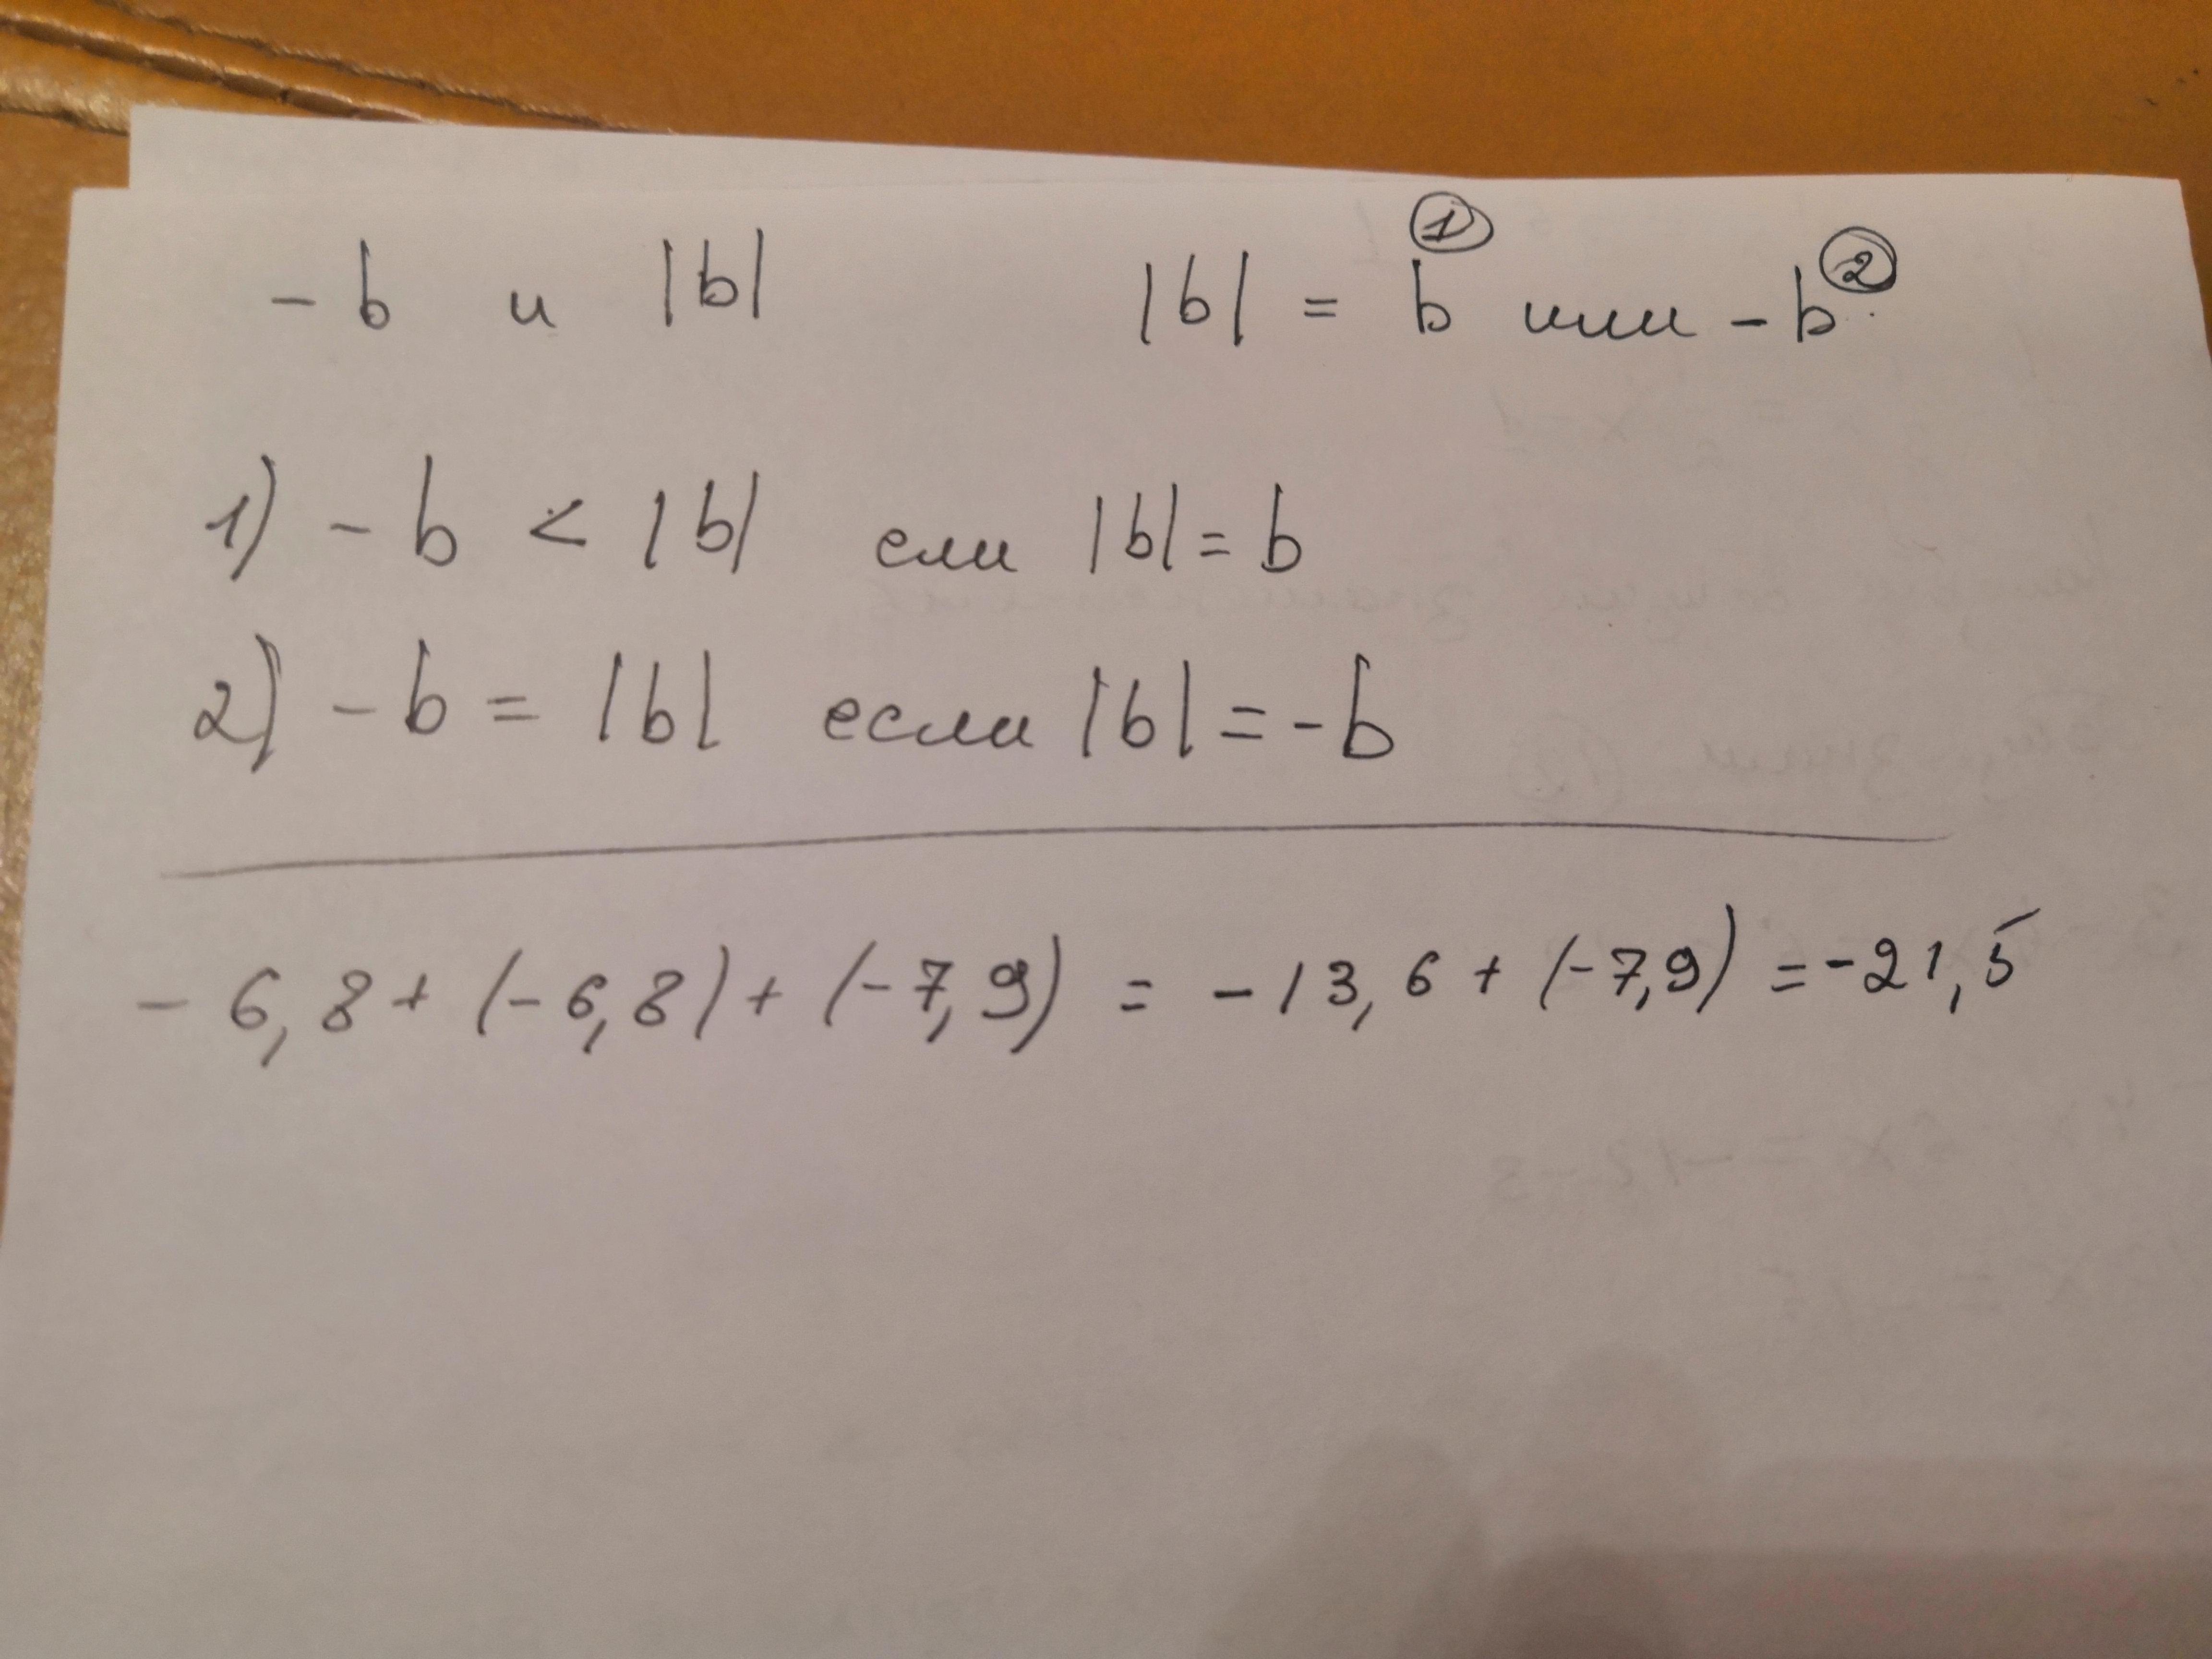 - b и |b| |b| = b ① или - b ②
1) - b < |b| если |b| = b
2) - b = |b| если |b| = - b
- 6,8 + (- 6,8) + (- 7,9) = - 13,6 + (- 7,9) = - 21,5